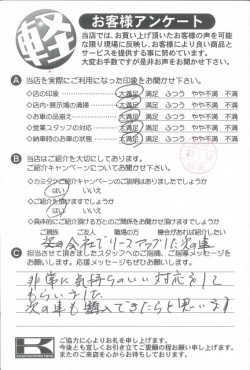 軽
お客様アンケート
当店では、お買い上げ頂いたお客様の声を可能
な限り現場に反映し、お客様により良い商品と
サービスを提供する事に努めています。
大変お手数ですが是非お声をお聞かせ下さい。
A 当店を実際にご利用になった印象をお聞かせ下さい。
・店の印象 大満足 満足 ふつう やや不満 不満
・店内・展示場の清掃 大満足 満足 ふつう やや不満 不満
・お車の品揃え 大満足 満足 ふつう やや不満 不満
・営業スタッフの対応 大満足 満足 ふつう やや不満 不満
・納車時のお車の状態 大満足 満足 ふつう やや不満 不満
B 当店はご紹介を大切にしてあります。
ご紹介キャンペーンのご説明はありましたでしょうか
はい いいえ
ご紹介を頂けますでしょうか
はい いいえ
・具体的にご紹介頂ける方とのご関係をお聞かせ頂けますでしょうか
ご親族 ご友人 職場の方 機会があれば紹介したい
C 担当させて頂きましたスタッフへのご指摘、ご指導メッセージを
お願いします。応援メッセージもぜひお願い致します。
非常に気持ちのいい対応をして
もらいました
次の車も購入できたらと思います
K
ご協力に心よりお礼を申し上げます。
今後とも宜しくお引き立てご愛顧の程お願い申し上げます。
またのご来店を心からお待ちしております。